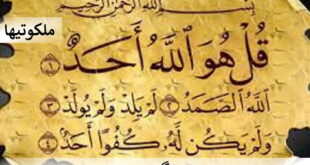 ملکوتیها
بسم الله الرحمن الرحيم
قُلْ هُوَ اللَّهُ أَحَدٌ ۝١
اللَّهُ الصَّمَدُ ۝٢ لَمْ يَلِدْ وَلَمْ يُولَدْ ۝٣
وَلَمْ يَكُن لَّهُ كُفُوًا أَحَدٌ ۝٤